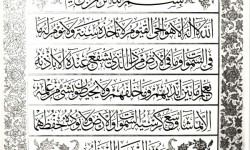 بسم الله الرحمن الرحيم
الله لا إله إلا هو الحي القيوم لا تأخذه سنة ولا نوم له ما
في السموات وما في الأرض من ذا الذي يشفع عنده إلا بإذنه
يعلم ما بين أيديهم وما خلفهم ولا يحيطون بشيء من علمه
إلا بما شاء وسع كرسيه السموات والأرض ولا يؤده حفظهما